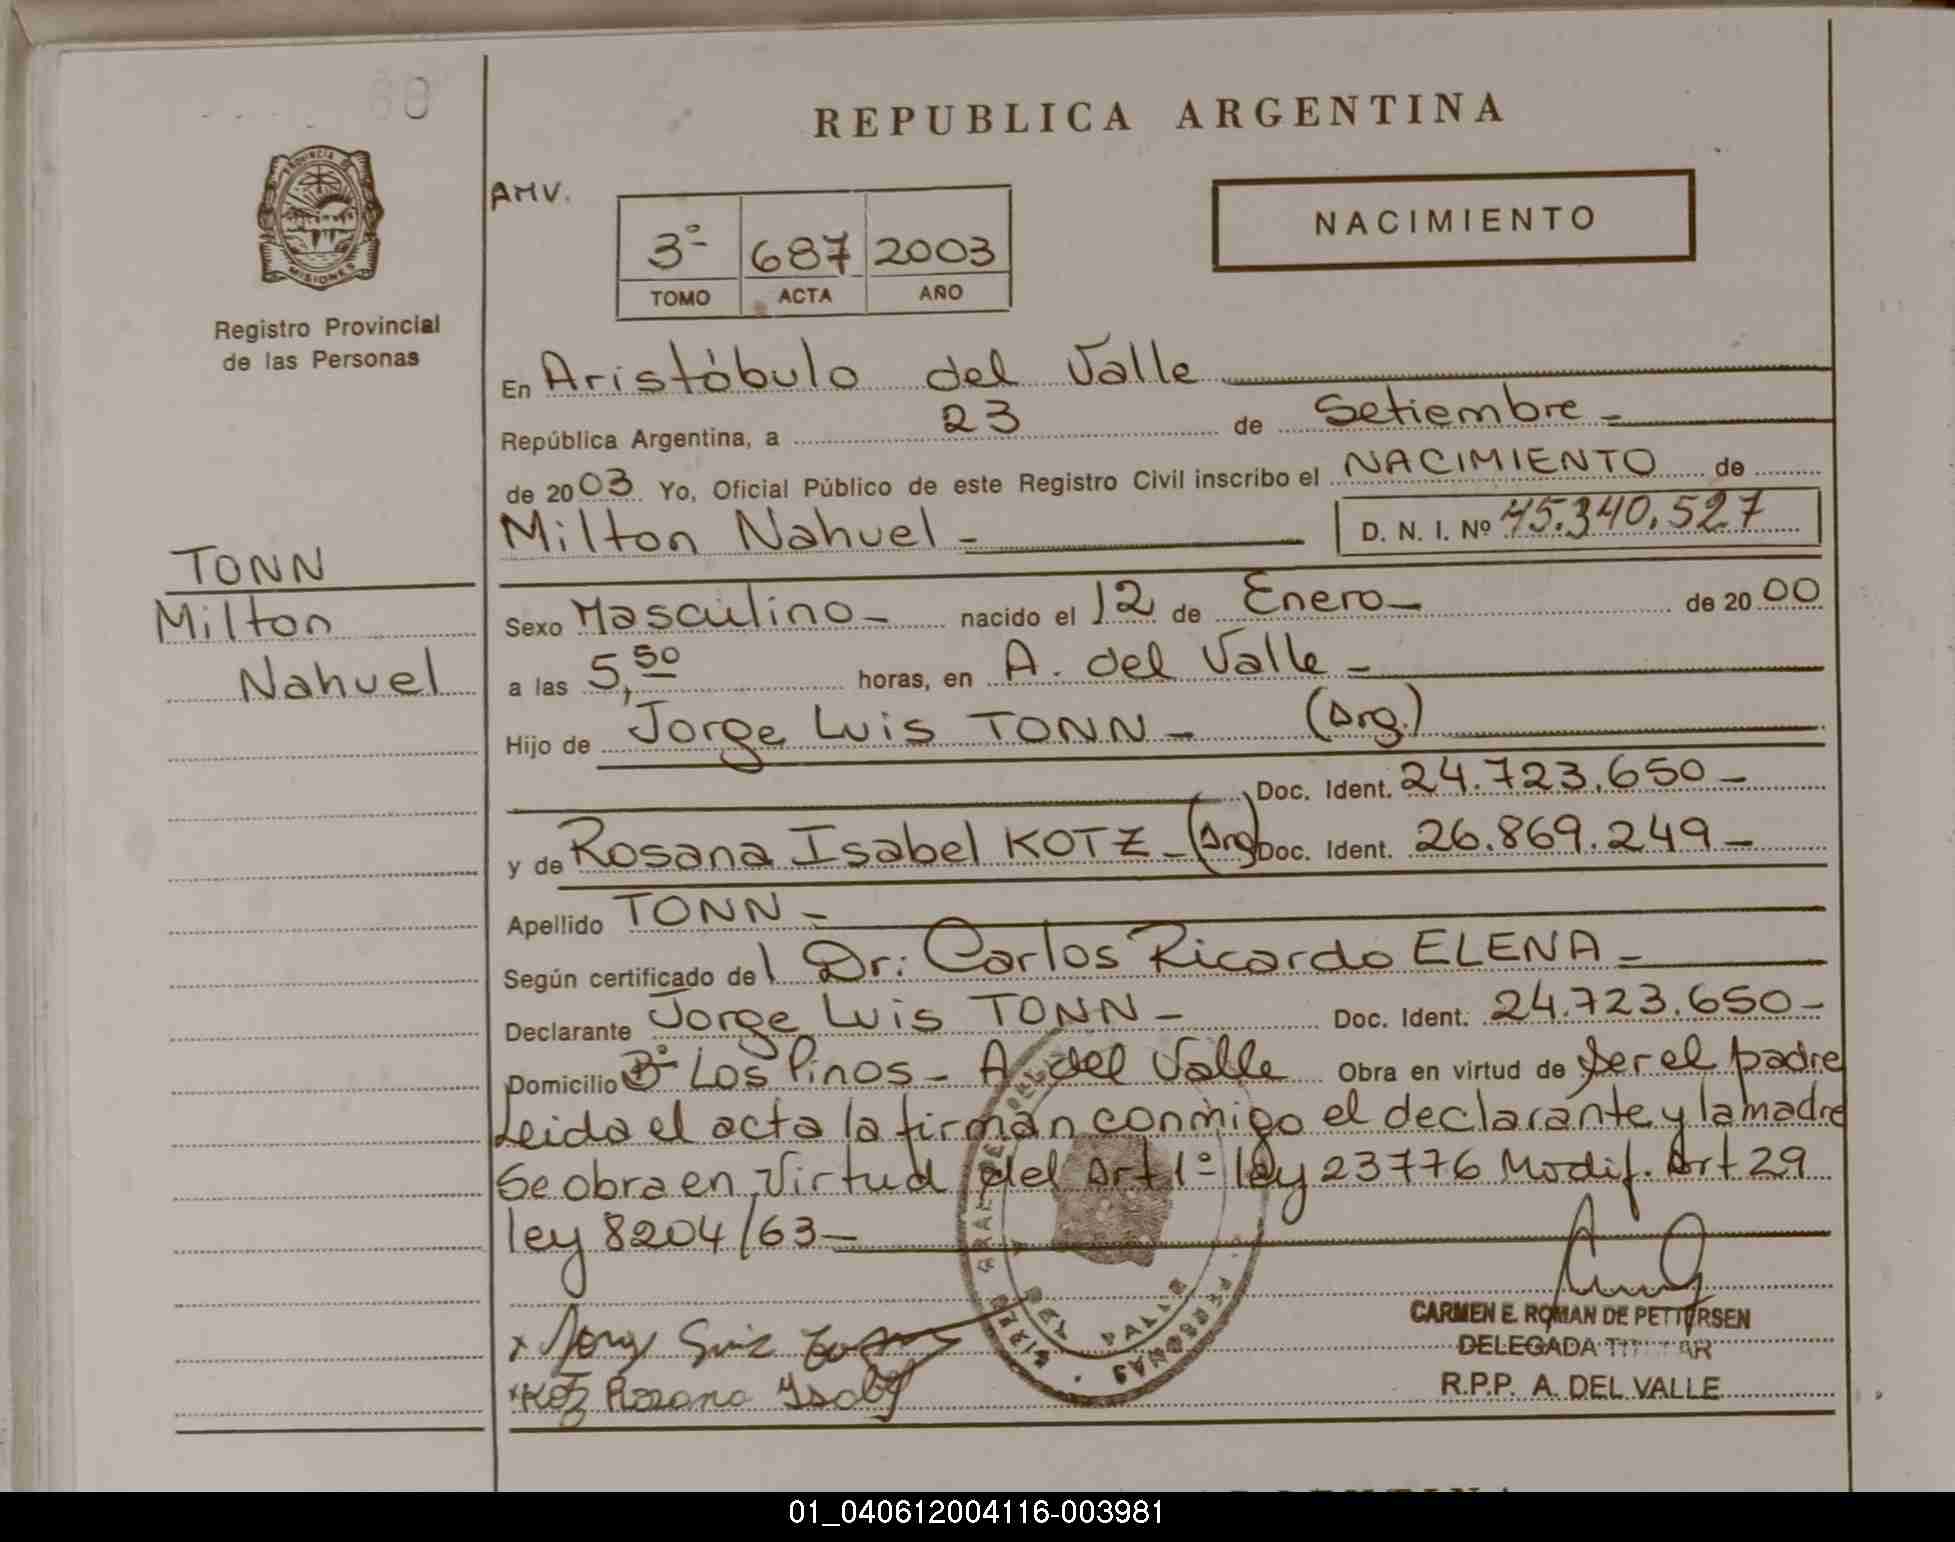 REPUBLICA ARGENTINA
PROVINCIA DE
MISIONES
Registro Provincial
de las Personas
AMV.
3º 687 2003
TOMO ACTA AÑO
NACIMIENTO
En Aristóbulo del Valle
República Argentina, a 23 de Setiembre
de 2003 Yo, Oficial Público de este Registro Civil inscribo el NACIMIENTO de
Milton Nahuel D. N. I. Nº 45.340.527
TONN
Milton
Nahuel
Sexo Masculino nacido el 12 de Enero de 2000
a las 5,50 horas, en A. del Valle
Hijo de Jorge Luis TONN (Arg.)
Doc. Ident. 24.723.650
y de Rosana Isabel KOTZ (Arg) Doc. Ident. 26.869.249
Apellido TONN
Según certificado del Dr: Carlos Ricardo ELENA
Declarante Jorge Luis TONN Doc. Ident. 24.723.650
Domicilio Bº Los Pinos - A. del Valle Obra en virtud de Ser el padre
Leida el acta la firman conmigo el declarante y la madre
Se obra en Virtud del Art 1º ley 23776 Modif. Art 29
ley 8204/63
CARMEN E. ROMAN DE PETTERSEN
DELEGADA TITULAR
R.P.P. A. DEL VALLE
Kotz Rosana Ysabel
DEL VALLE
PERSONAS
01_040612004116-003981